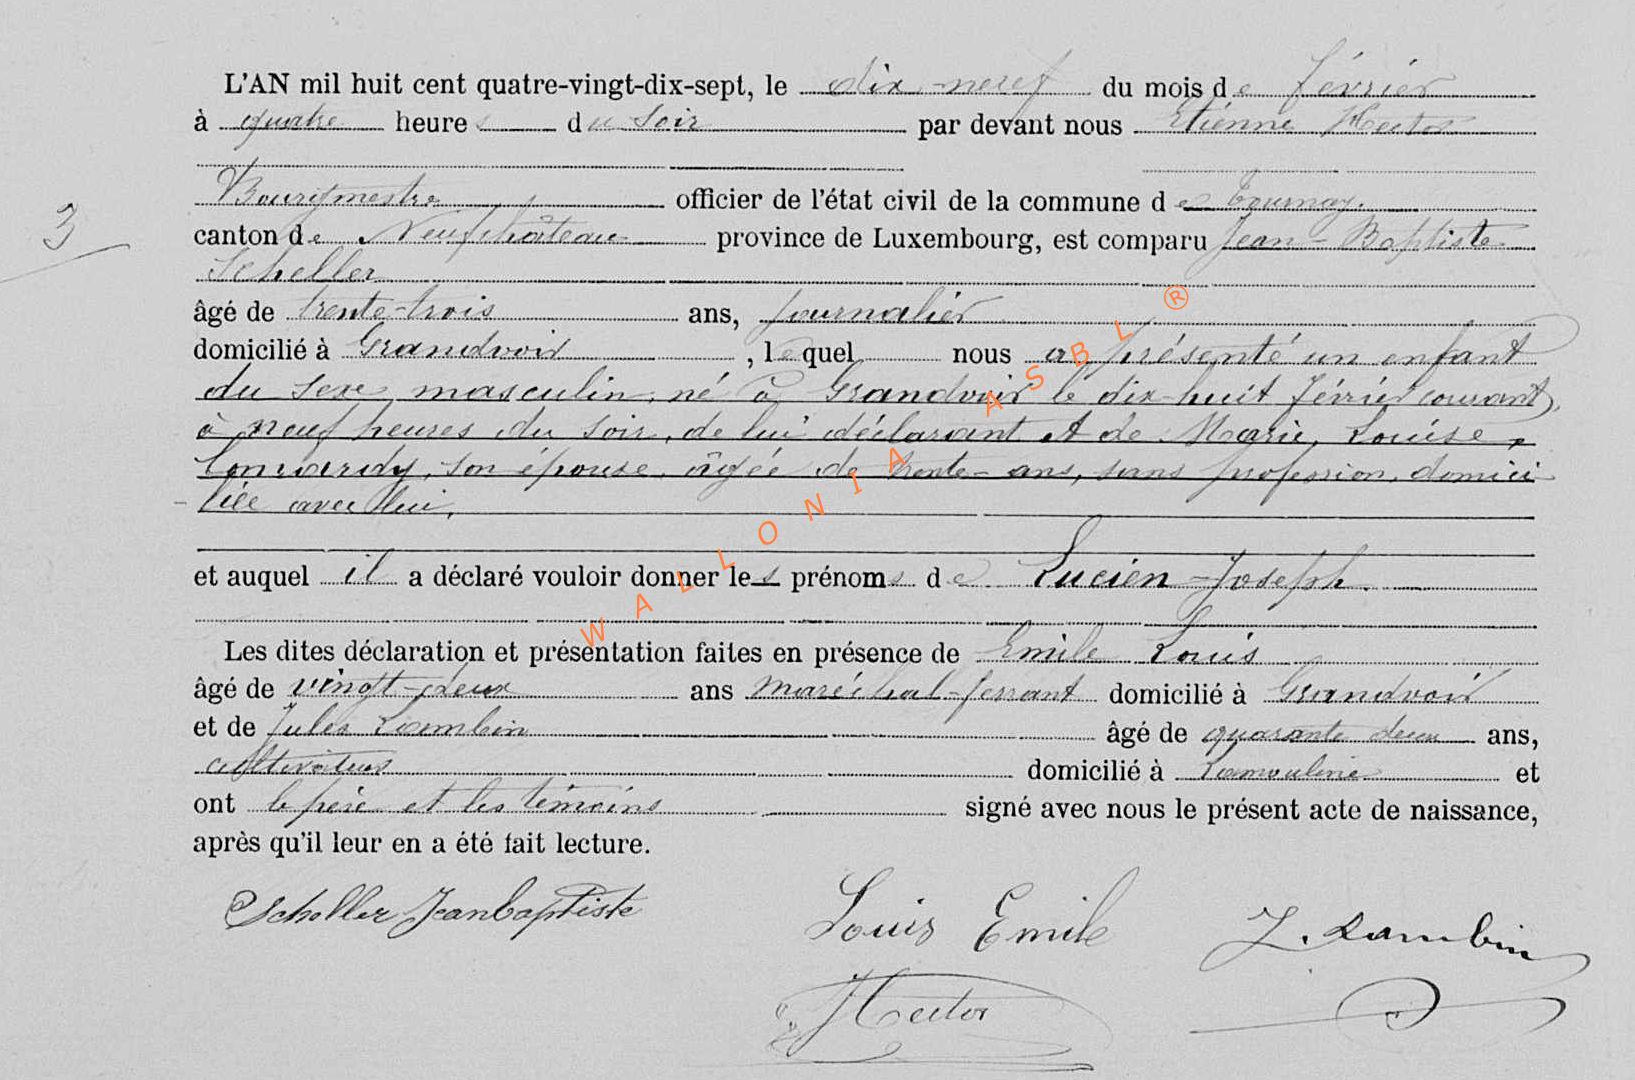 L'AN mil huit cent quatre-vingt-dix-sept, le dix-neuf du mois de février
à quatre heures du soir par devant nous Etienne Hector
Bourgmestre officier de l'état civil de la commune de Tournay.
3
canton de Neufchâteau province de Luxembourg, est comparu Jean-Baptiste
Scheller
âgé de trente-trois ans, journalier
domicilié à Grandvoir, lequel nous a présenté un enfant
du sexe masculin, né à Grandvoir le dix-huit février courant,
à neuf heures du soir, de lui déclarant et de Marie, Louise,
son épouse, âgée de trente ans, sans profession, domici
-liée avec lui.
et auquel il a déclaré vouloir donner les prénoms de Lucien-Joseph.
Les dites déclaration et présentation faites en présence de Emile Louis
âgé de vingt-deux ans maréchal-ferrant domicilié à Grandvoir
et de Jules Lambin âgé de quarante deux ans,
cultivateur domicilié à Lamouline et
ont le père et les témoins signé avec nous le présent acte de naissance,
après qu'il leur en a été fait lecture.
Scheller Jeanbaptiste Louis Emile J. Lambin
Hector
WALLONIA ASBL ®